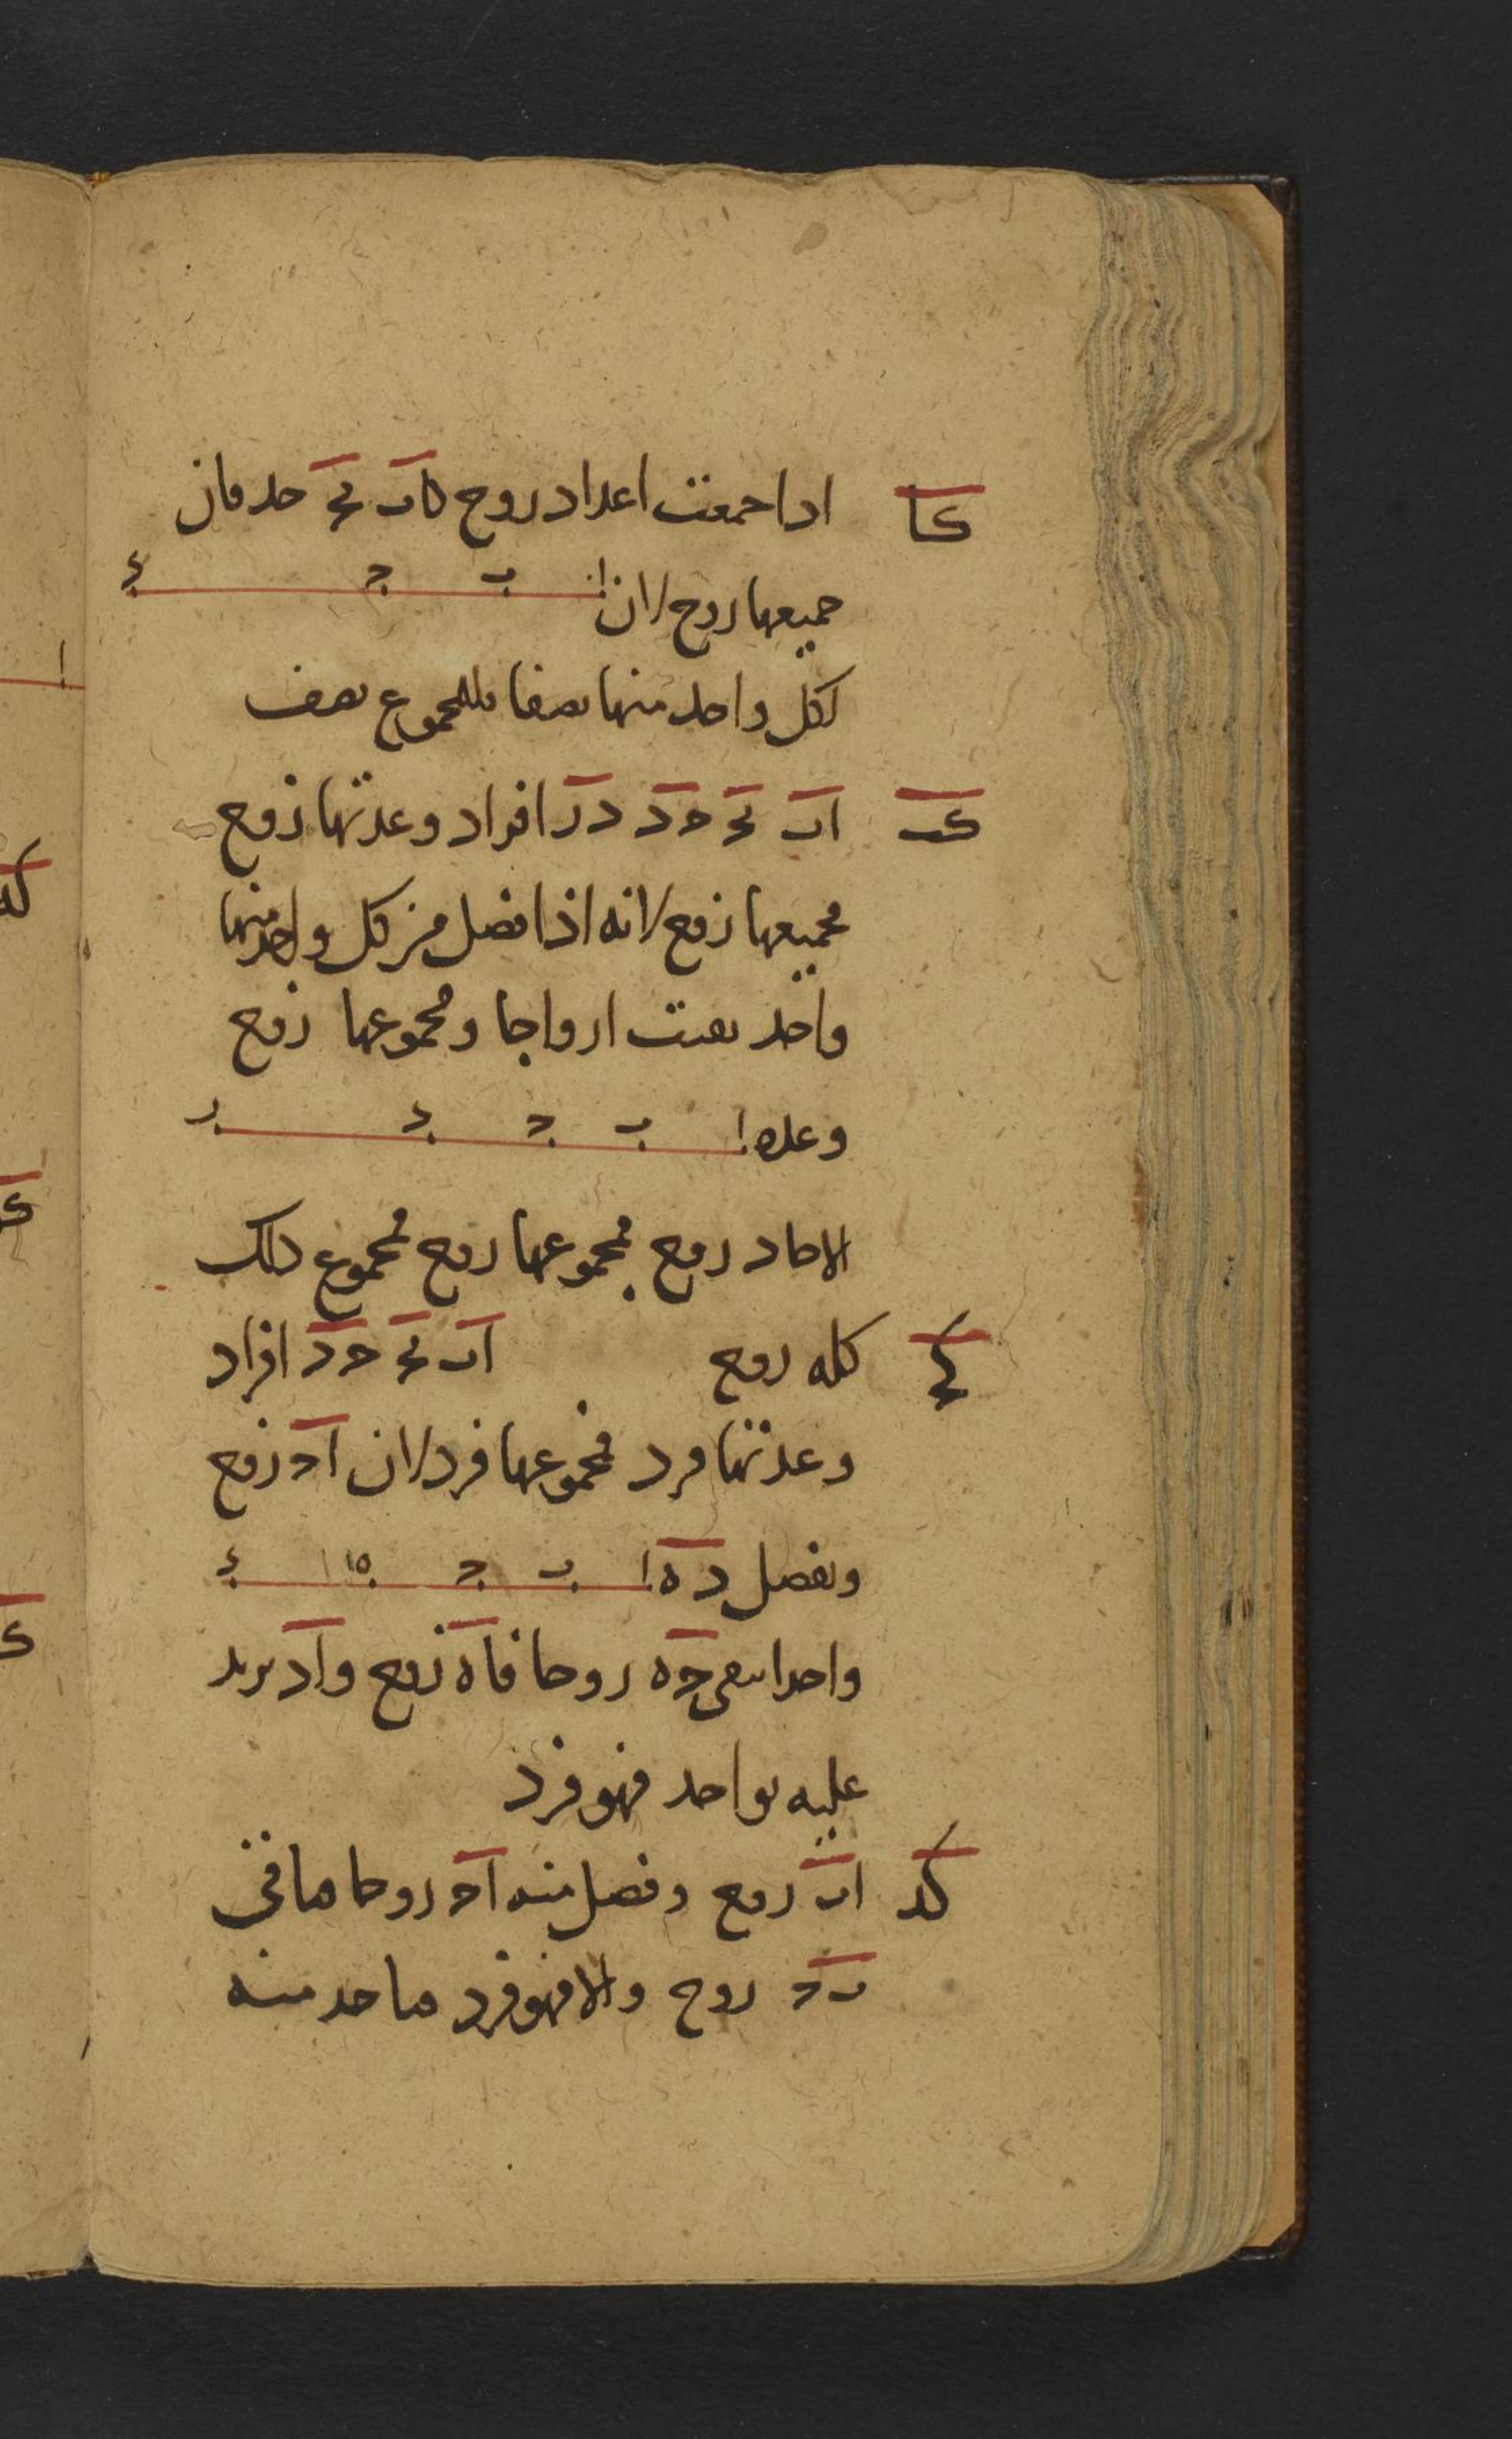 كا اذا جمعت اعداد زوج كاب بج جد فان
جميعها زوج لان ا ب ج د
لكل واحد منها نصفا فللمجموع نصف
كب اب بج جد در افراد وعدتها زوج
فجميعها زوج لانه اذا فصل من كل واحد منها
واحد بقيت ازواجا ومجموعها زوج
وعدة ا ب ج د ر
الاحاد زوج فمجموعها زوج فمجموع ذلك
كله زوج
كج اب بج جد افراد
وعدتها فرد فمجموعها فرد لان اج زوج
ونفصل ده ا ب ج ه د
واحدا يبقى جه زوجا فاه زوج واد يزيد
عليه بواحد فهو فرد
كد اب زوج وفصل منه اج زوجا فباقي
بج زوج والا فهو فرد فاجد منه